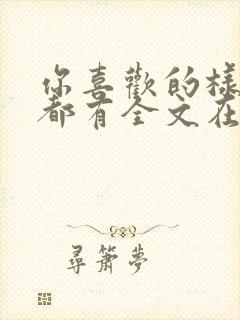 你喜歡的樣
都有全文在
尋簫夢